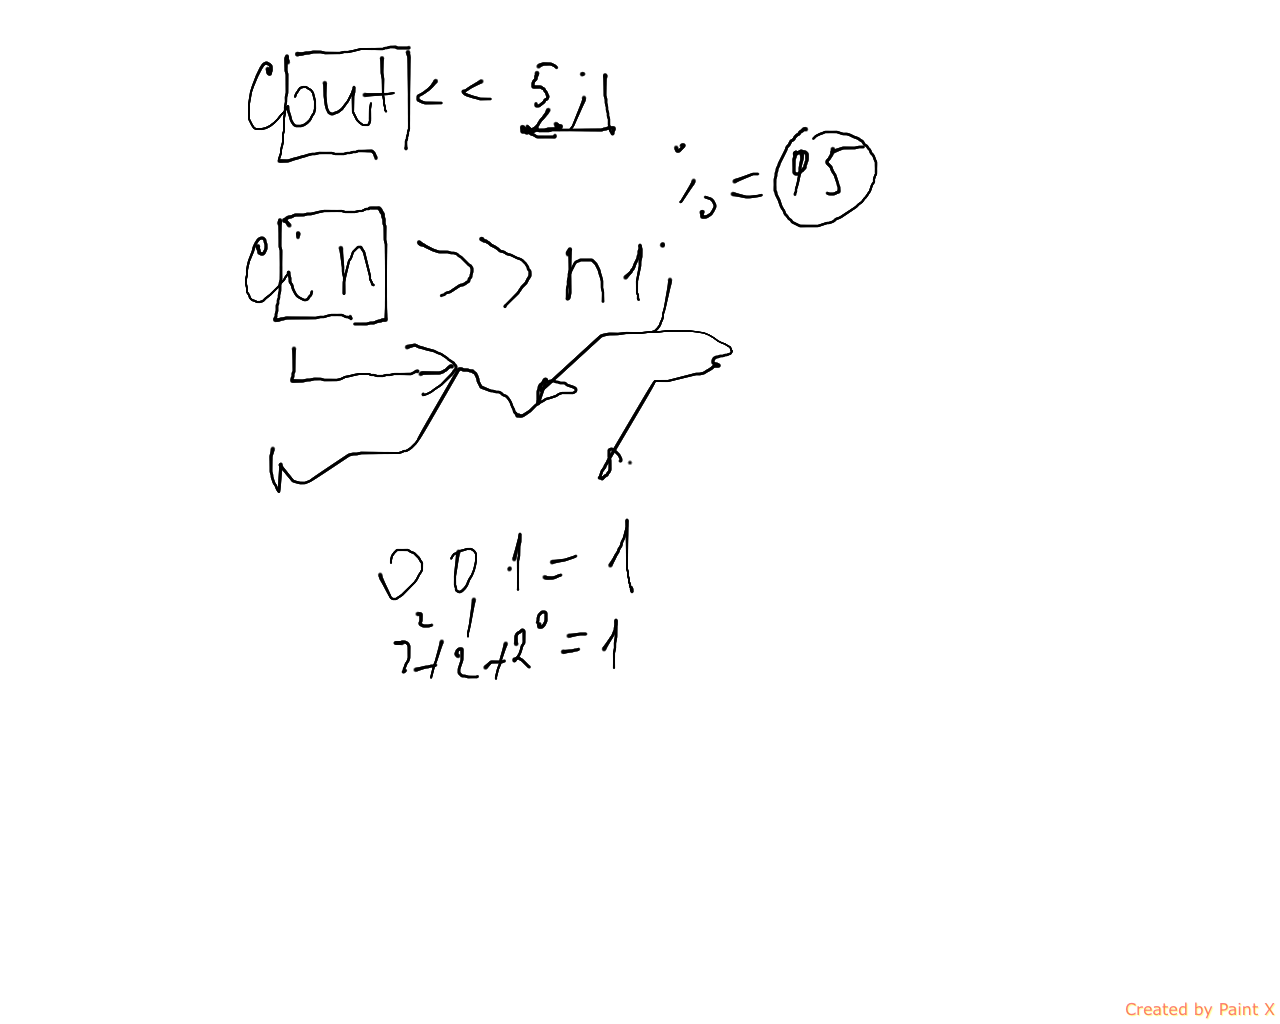 cout << 5;
= 95
cin >> n1;
001 = 1
2²+2¹+2⁰ = 1
Created by Paint X